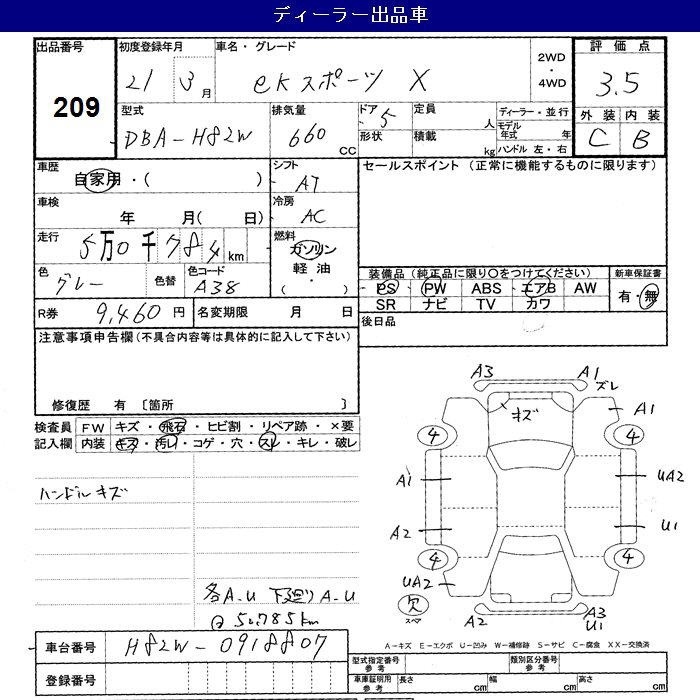 ディーラー出品車
出品番号
209
初度登録年月 車名・グレード
21 3 月 eKスポーツ X
2WD ・ 4WD
評価点
3.5
外装 内装
C B
型式 排気量 ドア 定員 ディーラー・並行
DBA-H82W 660 CC 5 人
形状 積載 kg
モデル年式 年
ハンドル 左・右
車歴
自家用・( )
シフト
AT
セールスポイント (正常に機能するものに限ります)
車検
年 月( 日)
冷房
AC
走行
5万0千784km
燃料
ガソリン
軽油
( ・ )
色 色替 色コード
グレー A38
装備品 (純正品に限り○をつけてください) 新車保証書
PS PW ABS エアB AW 有・無
SR ナビ TV カワ
R券 9,460 円 名変期限 月 日
後日品
注意事項申告欄 (不具合内容等は具体的に記入して下さい)
修復歴 有 〔箇所 〕
検査員 FW キズ・飛石・ヒビ割・リペア跡・×要
記入欄 内装 キズ・汚れ・コゲ・穴・スレ・キレ・破レ
ハンドルキズ
各A-U 下廻りA-U
@50.785km
A3 A1
ズレ
キズ A1
4 4
A1 UA2
A2 U1
4 4
UA2
欠
スペア
A2 A3
U1
A-キズ E-エクボ U-凹み W-補修跡 S-サビ C-腐食 XX-交換済
車台番号 H82W-0918807
登録番号
型式指定番号 参考 類別区分番号 参考
車庫証明用 参考 長さ cm 幅 cm 高さ cm